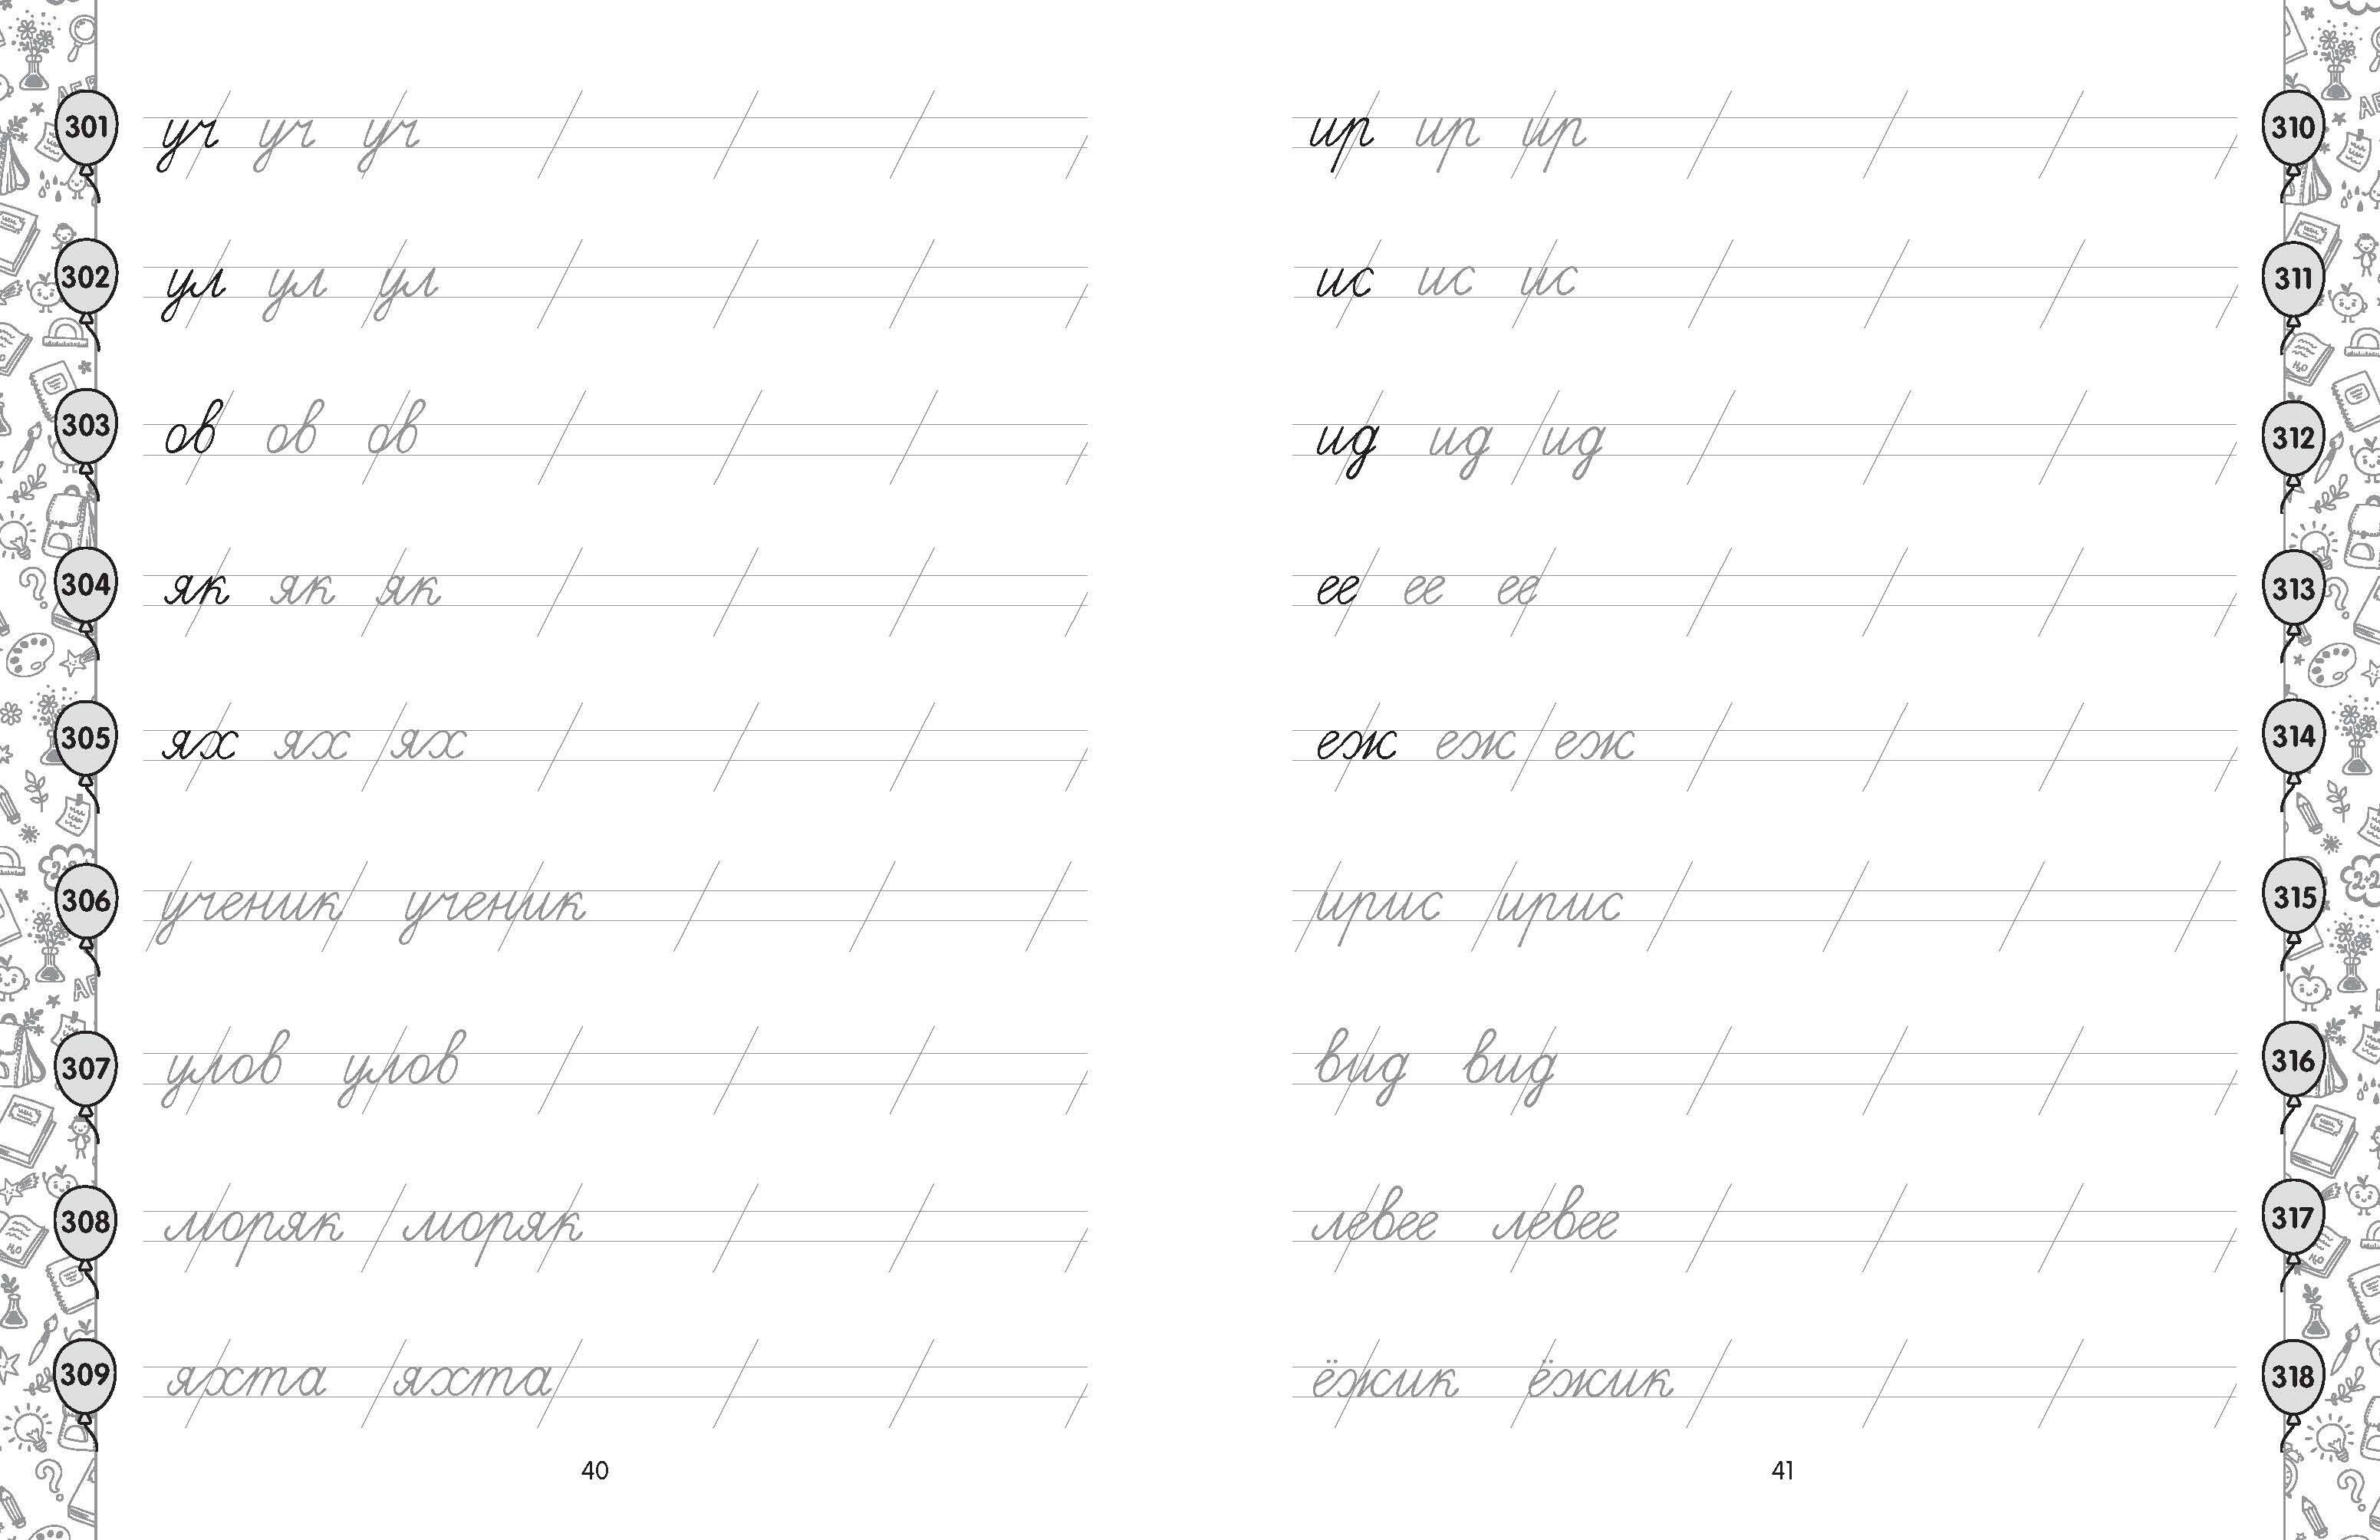 301 уч уч уч
302 ул ул ул
303 ов ов ов
304 як як як
305 ях ях ях
306 ученик ученик
307 улов улов
308 моряк моряк
309 яхта яхта
40
ир ир ир 310
ис ис ис 311
ид ид ид 312
ее ее ее 313
еж еж еж 314
ирис ирис 315
вид вид 316
левее левее 317
ёжик ёжик 318
41